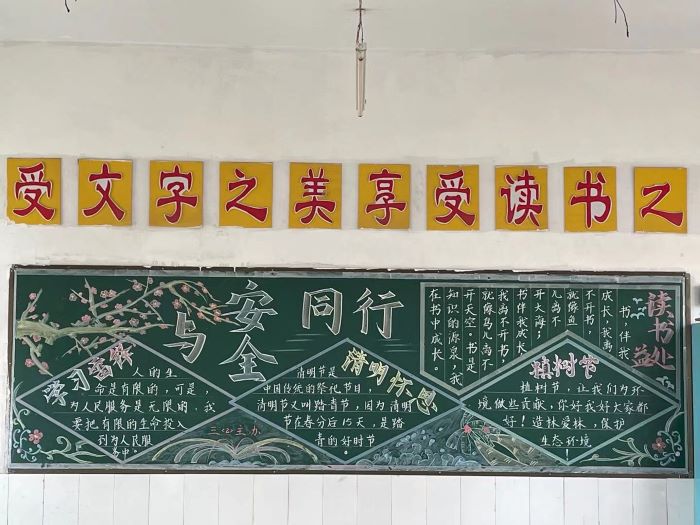 受文字之美享受读书之
与安全同行
学习雷锋
人的生
命是有限的,可是,
为人民服务是无限的,我
要把有限的生命投入
到为人民服
务中。
主办
清明怀思
清明节是
中国传统的祭祀节日,
清明节又叫踏青节,因为清明
节在春分后15天,是踏
青的好时节。
读书益处
书,伴我
成长,我离
不开书,
就像鱼
儿离不
开大海;
书伴我成长
我离不开书
就像鸟儿离不
开天空。书是
知识的源泉,我
在书中成长。
植树节
植树节,让我们为环
境做些贡献,你好我好大家都
好!造林爱林,保护
生态环境!